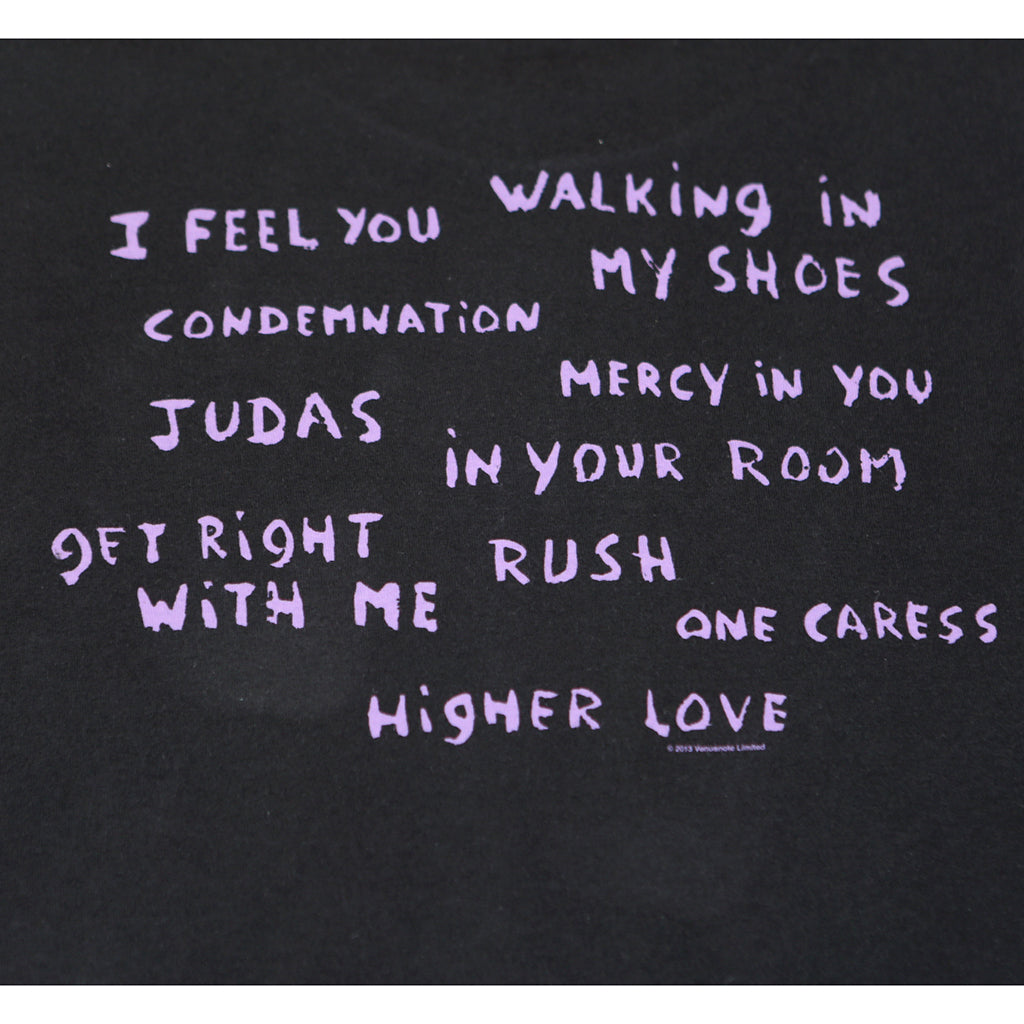 I FEEL YOU
WALKiNg iN
MY SHOES
CONDEMNATiON
MERCY iN YOU
JUDAS
iN YOUR ROOM
gET RigHT
WiTH ME
RUSH
ONE CARESS
HigHER LOVE
© 2013 Venusnote Limited